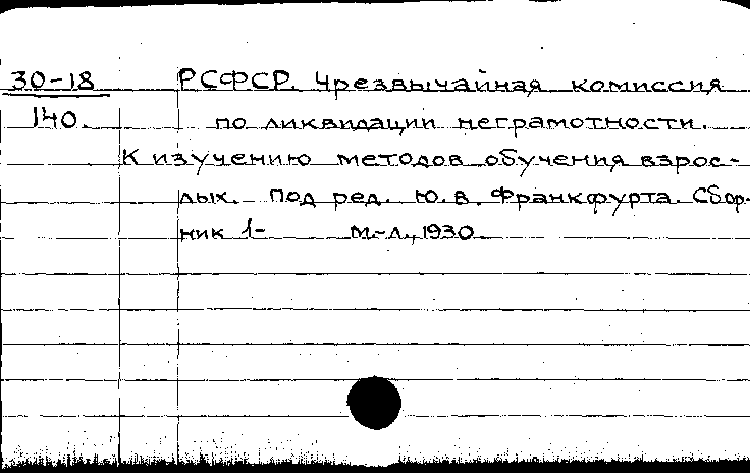 30-18 РСФСР. Чрезвычайная комиссия
140. по ликвидации неграмотности.
К изучению методов обучения взрос-
лых. Под ред. Ю. В. Франкфурта. Сбор-
ник 1- М.-Л., 1930.